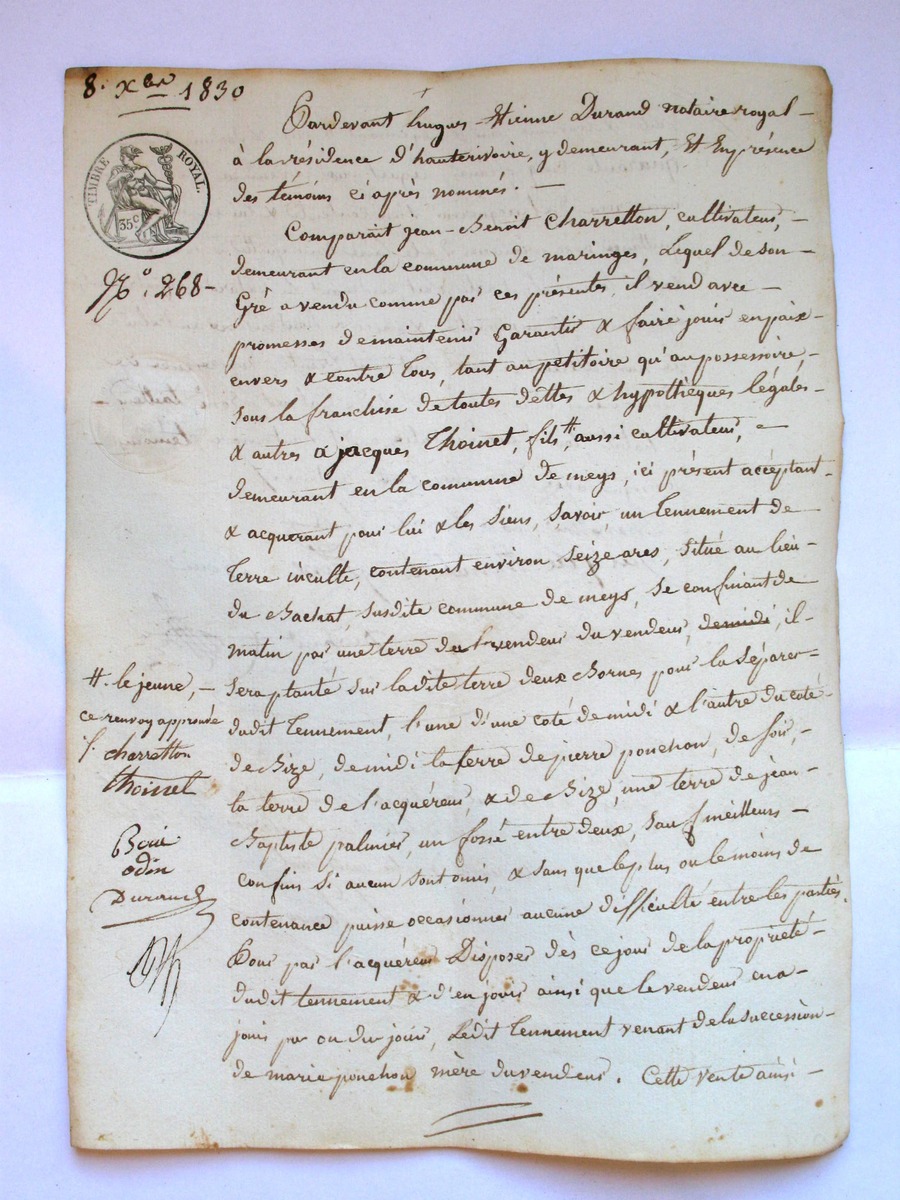 8. Xbre 1830
TIMBRE ROYAL.
35c
No. 268-
Pardevant hugues Etienne Durand notaire royal -
à la résidence d'hauterivoire, y demeurant, Et En présence
des témoins ci après nommés. -
Comparait jean-Benoit Charretton, cultivateur, -
demeurant en la commune de maringes, Lequel de son -
Gré a vendu comme par ces présentes il vend avec -
promesses de maintenir Garantir & faire jouir en paix -
envers & contre Tous, tant au petitoire qu'au possessoire, -
sous la franchise de toutes dettes & hypothèques légales -
& autres à jacques Thoinet, fils #, aussi cultivateur, -
demeurant en la commune de meys, ici présent accéptant -
& acquerant pour lui & les siens, savoir, un Tennement de
Terre inculte, contenant environ seize ares, situé au lieu -
du Bachat, susdite commune de meys, se confinant de
matin par une terre du vendeur, de midi, il -
sera planté sur la dite terre deux Bornes pour la séparer -
dudit Tennement, l'une d'une coté de midi & l'autre du coté -
de Bize, de midi la terre de pierre ponchon, de soir, -
la terre de l'acquéreur, & de Bize, une terre de jean -
Baptiste palmier, un fossé entre deux, sauf meilleurs -
confins si aucun sont omis, & sans que le plus ou le moins de
contenance puisse occasionner aucune difficulté entre les parties.
Pour par l'acquéreur Disposer dès ce jour de la propriété -
dudit tennement & d'en jouir ainsi que le vendeur en a -
joui pu ou du jouir, Ledit Tennement venant de la succession -
de marie ponchon mère du vendeur. Cette vente ainsi -
#. le jeune, -
ce renvoy approuvé
j. charretton
thoinet
odin
Durand